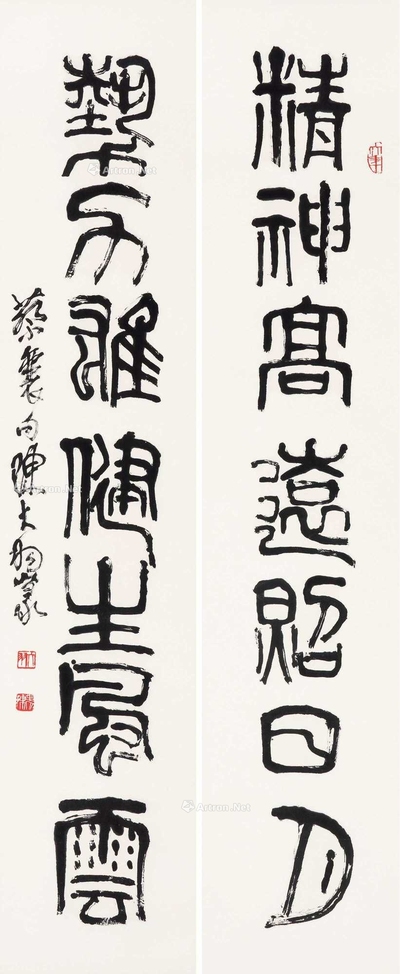 精神高遠照日月
藝力雄健生風雲
蔡襄句陳大羽篆
Artron.Net
Artron.Net